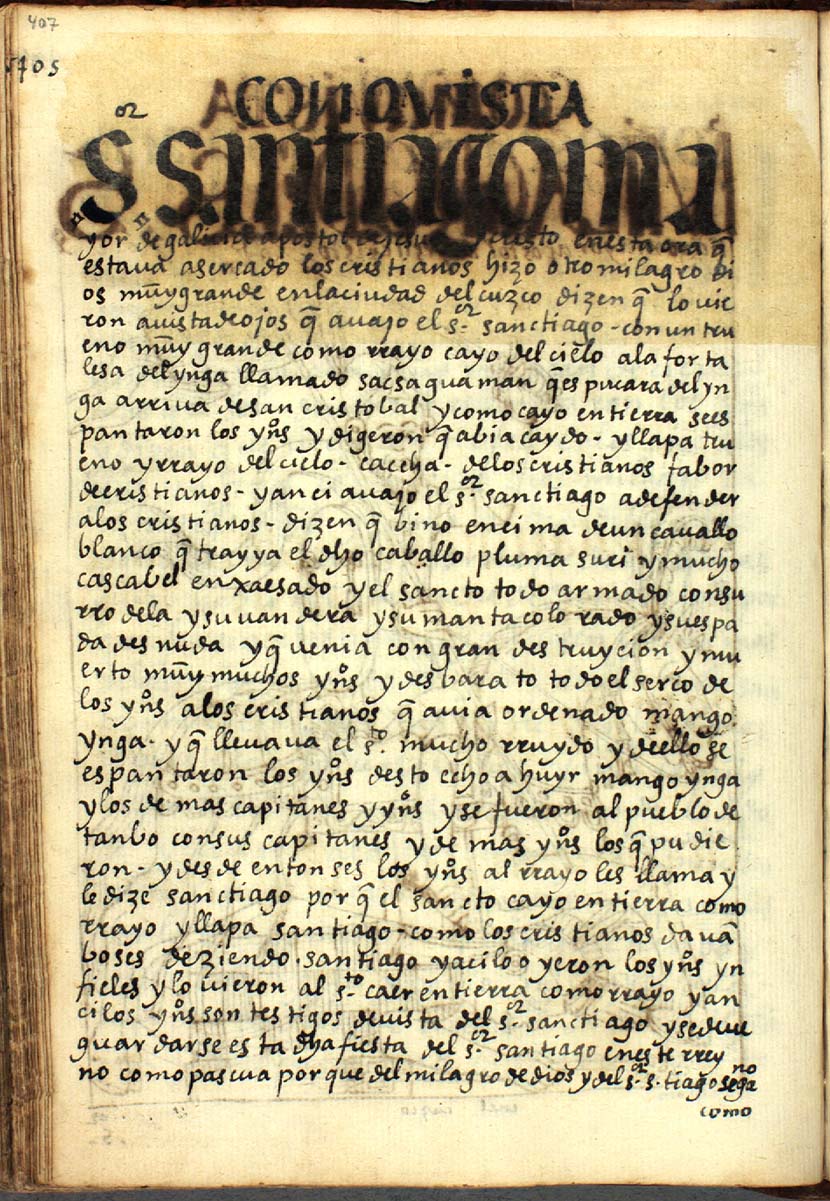 407
5705
CONQVISTA
S^or SANTIAGO MA
yor de galicia apostol de jesu cristo en esta ora q̃
estava asercado los cristianos hizo otro milagro di
os mũy grande en la ciudad del cuzco dizen q̃ lo vie
ron a uista de ojos q̃ auajo el s.^or sanctiago - con un tru
eno mũy grande como rrayo cayo del cielo a la forta
lesa del ynga llamado sacsa guaman q̃ es pucara del yn
ga arriua de san cristobal y como cayo en tierra se es
pantaron los yn^os y digeron q̃ abia caydo - yllapa tru
eno y rrayo del cielo - caccha - de los cristianos fabor
de cristianos - y anci auajo el s.^or sanctiago a defender
a los cristianos - dizen q̃ bino encima de un cauallo
blanco q̃ trayya el dho caballo pluma suri y mucho
cascabel enxaesado y el sancto todo armado con su
rrodela y su uandera y su manta colorado y su espa
da desnuda y q̃ uenia con gran destruycion y mu
erto mũy muchos yn^os y desbarato todo el serco de
los yn^os a los cristianos q̃ auia ordenado mango
ynga - y q̃ lleuaua el s.^to mucho rruydo y de ello se
espantaron los yn^os desto echo a huyr mango ynga
y los demas capitanes y yn^os y se fueron al pueblo de
tanbo con sus capitanes y demas yn^os los q̃ pudie
ron - y desde entonses los yn^os al rrayo les llama y
le dize sanctiago por q̃ el sancto cayo en tierra como
rrayo yllapa santiago - como los cristianos dauã
boses deziendo - santiago y aci lo oyeron los yn^os yn
fieles y lo uieron al s.^to caer en tierra como rrayo y an
ci los yn^os son testigos de uista del s.^or sanctiago y se deue
guardarse esta dha fiesta del s.^or santiago en este rrey
no como pascua porque del milagro de dios y del s.^or s. tiago se ga
no
como